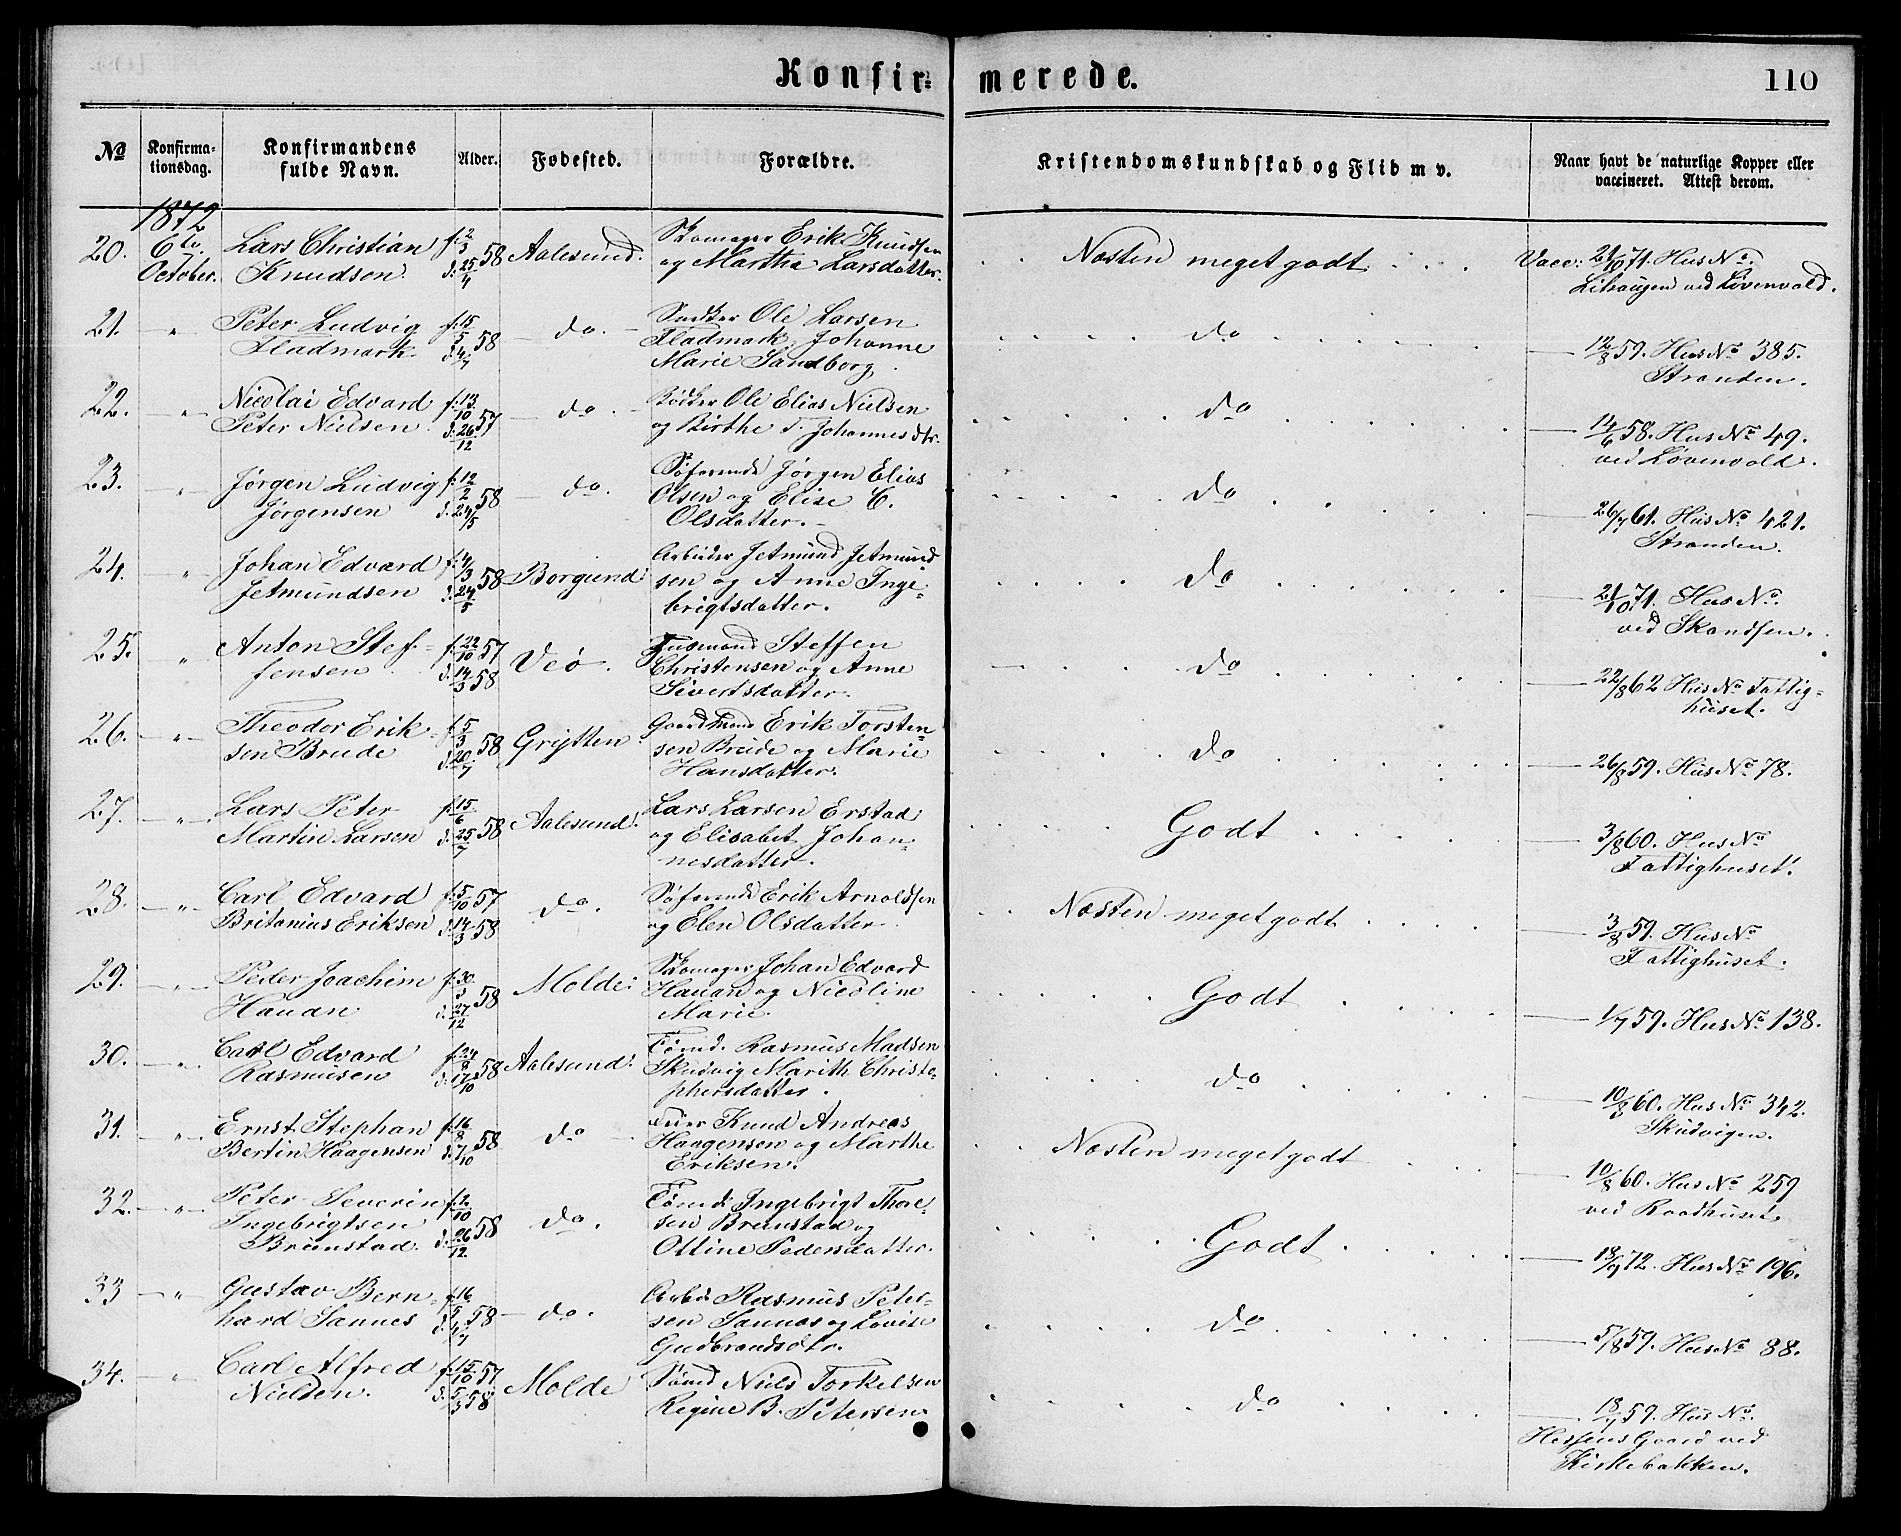 Konfir- merede. 110
No Konfirma-tionsdag. Konfirmandens fulde Navn. Alder. Fødested. Forældre. Kristendomskundskab og Flid m v. Naar havt de naturlige Kopper eller vaccineret. Attest derom.
1872
20. 6te Lars Christian f. 2/3 58 Aalesund. Skomager Erik Knudsen Næsten meget godt Vacc: 21/10 71. Hus No
October. Knudsen d. 25/4 og Martha Larsdatter. ved Løvenvold.
21. " Peter Ludvig f. 15/5 58 do. Ole Larsen do 12/8 59. Hus No 385.
Fladmark. d. 4/7 Fladmark, Johanne Stranden.
Marie Sandborg.
22. " Nicolai Edvard f. 13/10 57 do. Bødker Ole Elias Nielsen do 14/6 58. Hus No 49.
Peter Nielsen d. 26/12 og Birthe T. Johannesdtr. ved Løvenvold.
23. " Jørgen Ludvig f. 12/2 58 do. Søfarende Jørgen Elias do 26/7 61. Hus No 421.
Jørgensen d. 24/5 Olsen og Elise C. Stranden.
Olsdatter.
24. " Johan Edvard f. 4/3 58 Borgund. Arbeider Jetmund Jetmund do 21/10 71. Hus No
Jetmundsen d. 24/5 sen og Anne Inge- ved Skandsen.
brigtsdatter.
25. " Anton Stef- f. 22/10 57 Veø. Husmand Steffen do 22/8 62 Hus No Fattig-
fensen d. 14/3 58 Christensen og Anne huset.
Sivertsdatter.
26. " Theodor Erik- f. 5/3 58 Grytten. Gaardmand Erik Torsten- do 26/8 59. Hus No 78.
sen Brude d. 20/7 sen Brude og Marie
Hansdatter.
27. " Lars Peter f. 15/6 58 Aalesund. Lars Larsen Erstad Godt 3/8 60. Hus No
Martin Larsen d. 25/7 og Elisabet Johan- Fattighuset.
nesdatter.
28. " Carl Edvard f. 5/10 57 do. Søfarende Erik Arnoldsen Næsten meget godt 3/8 59. Hus No
Britanius Eriksen d. 14/3 58 og Elen Olsdatter Fattighuset.
29. " Peder Joachim f. 30/3 58 Molde. Skomager Johan Edvard Godt 1/7 59. Hus No 138.
Hauan d. 27/12 Hauan og Nicoline
Marie.
30. " Carl Edvard f. 24/8 58 Aalesund. Tømd. Rasmus Madsen do 10/8 60. Hus No 342.
Rasmusen d. 17/10 Skudvig Marith Christo- Skudvigen.
phersdatter.
31. " Ernst Stephan f. 16/8 58 do. Knud Andreas Næsten meget godt 10/8 60. Hus No 259
Bertin Haagensen d. 7/10 Haagensen og Marthe ved Raadhuset.
Eriksen.
32. " Peter Severin f. 2/10 58 do. Tømd. Ingebrigt Thore- Godt 18/9 72. Hus No 196.
Ingebrigtsen d. 26/12 sen Brunstad og
Brunstad. Ottine Pedersdatter.
33 " Gustav Bern- f. 16/5 58 do. Arbd. Rasmus Peter- do 5/8 59. Hus No 88.
hard Sannes d. 4/7 sen Sannes og Lovise
Gudbrandsdtr.
34. " Carl Alfred f. 15/10 57 Molde Sømd Niels Torkelsen do 18/7 59. Hus No
Nielsen. d. 5/3 58 Regine B. Petersen. Hessens Gaard ved
Kirkebakken.